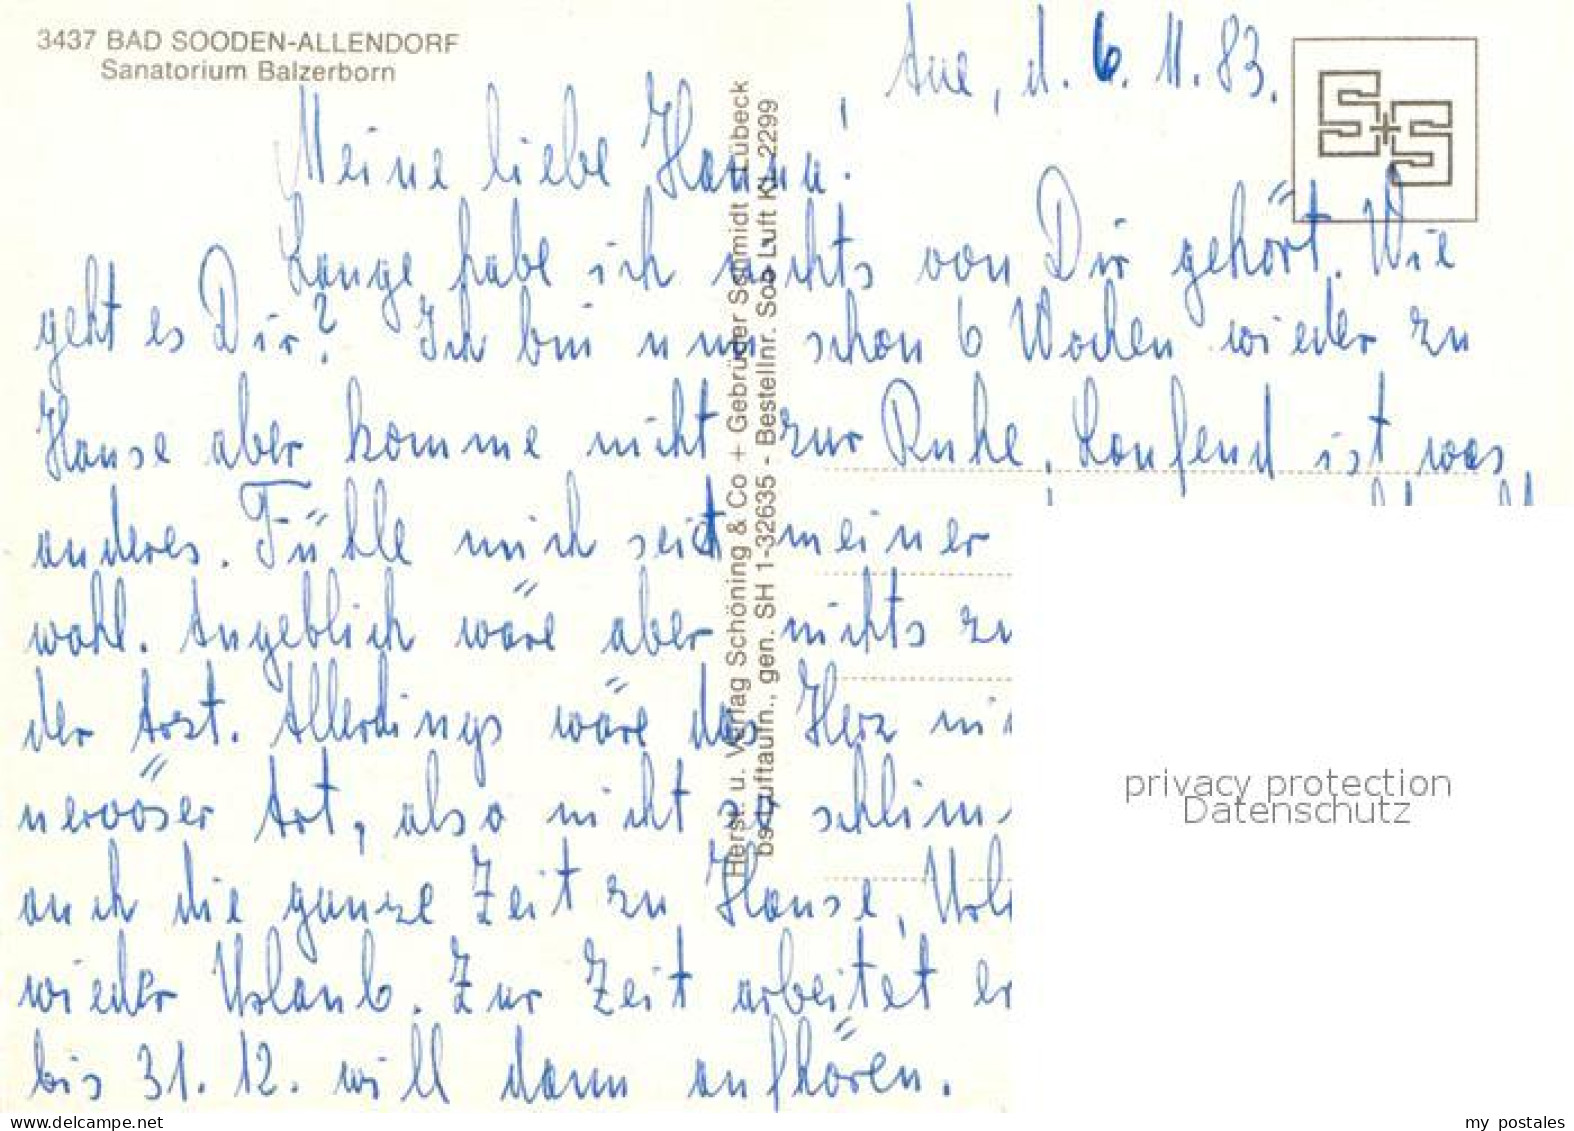 3437 BAD SOODEN-ALLENDORF
Sanatorium Balzerborn
Aue, d. 6. 11. 83.
S+S
Meine liebe Hanna!
Lange habe ich nichts von Dir gehört. Wie
geht es Dir? Ich bin nun schon 6 Wochen wieder zu
Hause aber komme nicht zur Ruhe. Laufend ist was
anderes. Fühle mich seit meiner
wohl. Angeblich wäre aber nichts zu
der Arzt. Allerdings wäre das Herz
nervöser Art, also nicht so schlim-
auch die ganze Zeit zu Hause,
wieder Urlaub. Zur Zeit arbeitet er
bis 31. 12. will dann aufhören.
Herst. u. Verlag Schöning & Co + Gebrüder Schmidt Lübeck
bs-Luftaufn., gen. SH 1-32635 - Bestellnr. Soo Luft KL 2299
privacy protection
Datenschutz
www.delcampe.net
my postales